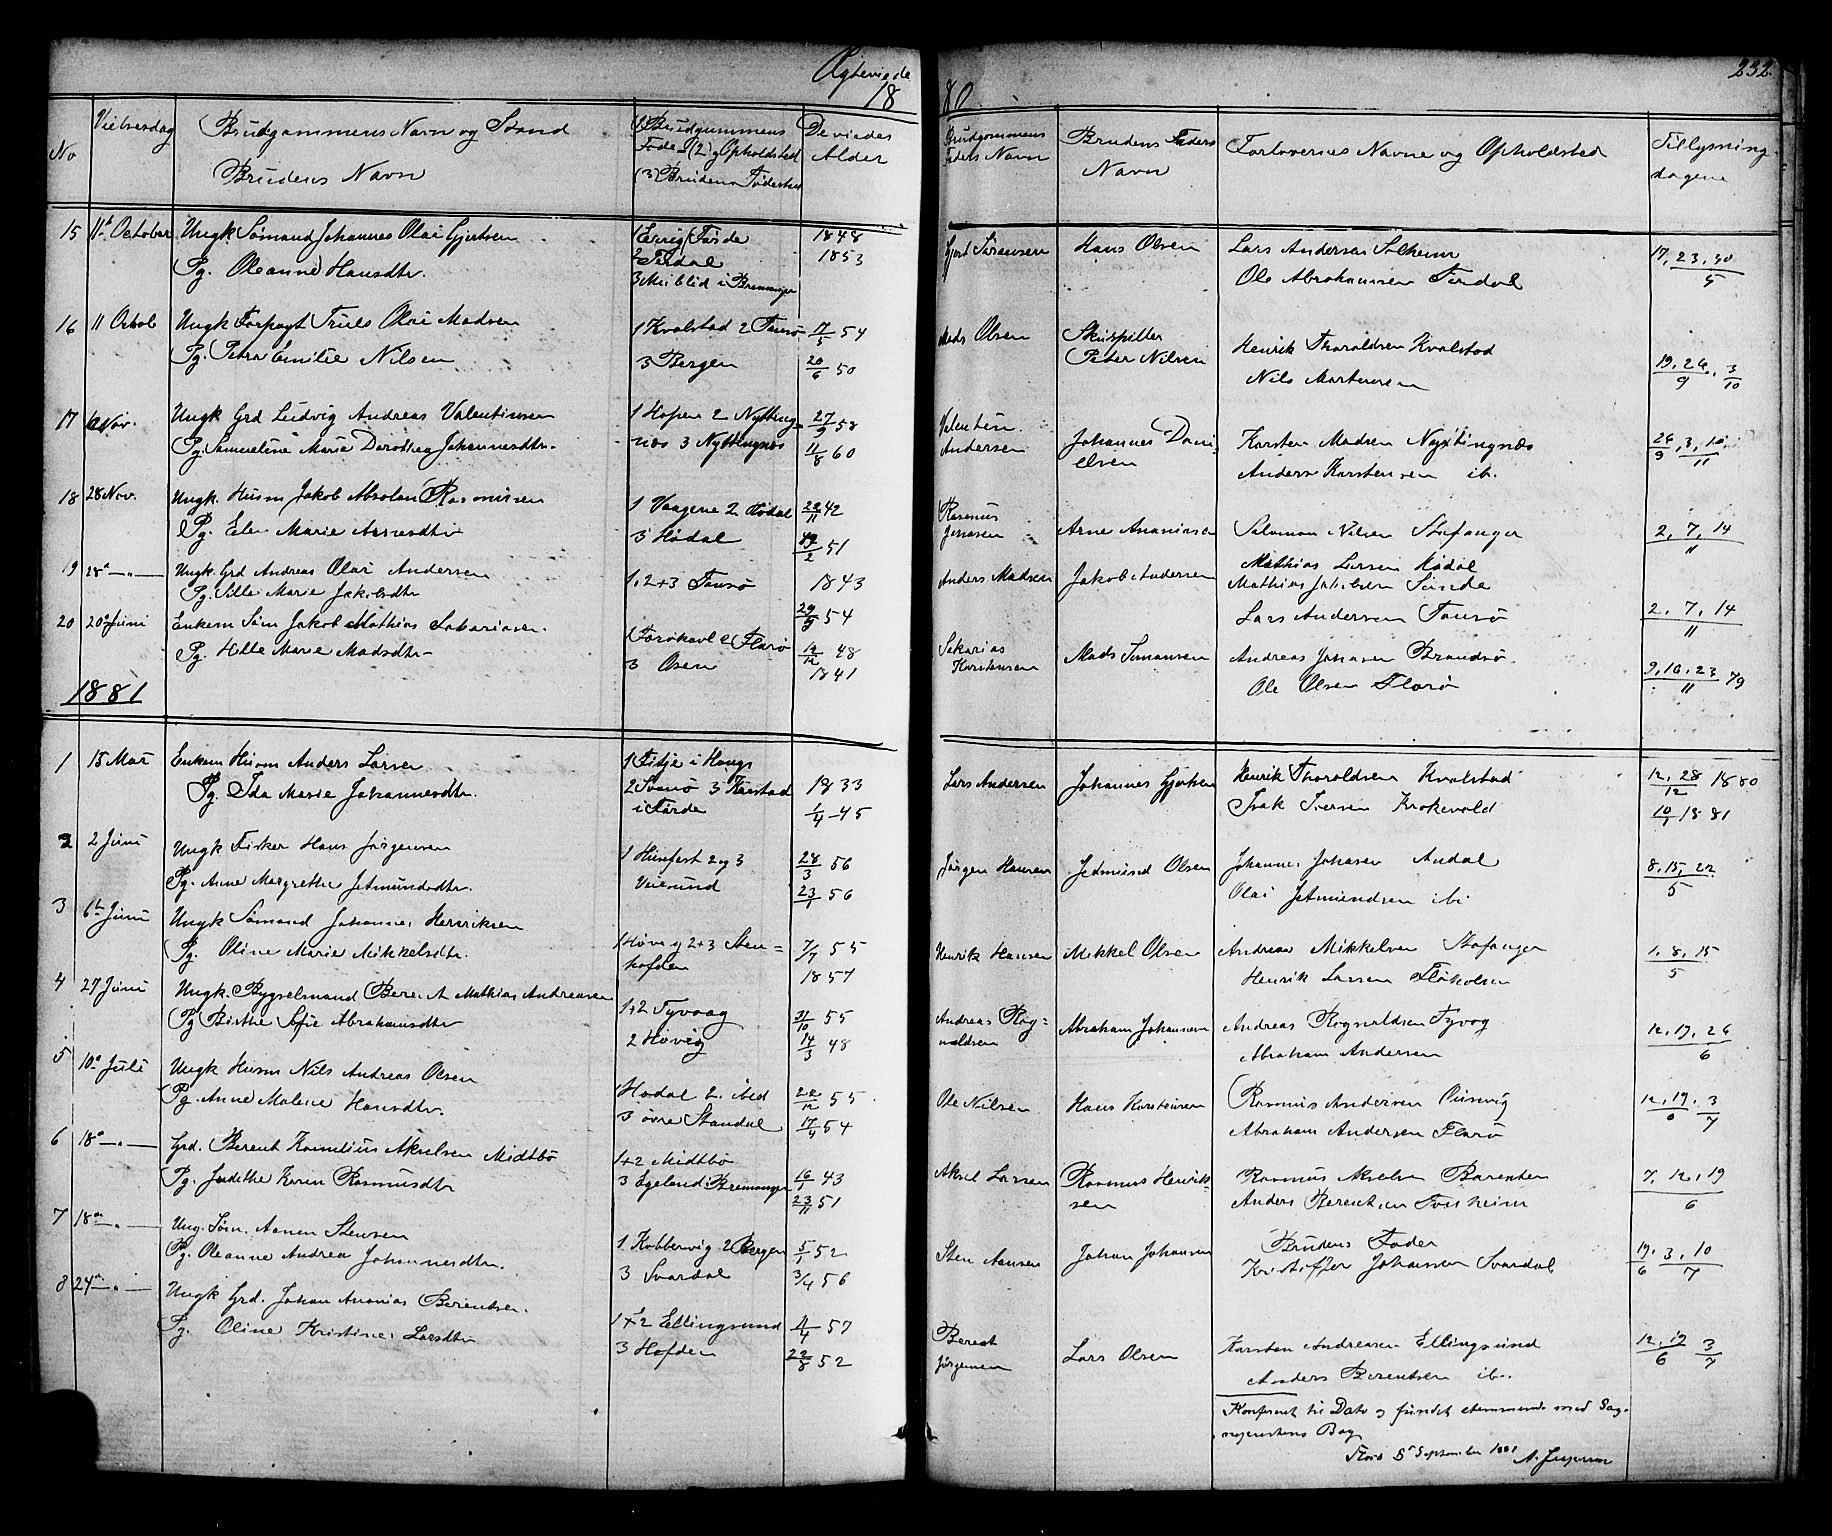 Ægteviede
18
80
232.
No
Vielsesdag
Brudgommens Navn og Stand
Brudens Navn
(1) Brudgummens
Føde (2) og Opholdsted
(3) Brudens Fødested
De viedes
Alder
Brudgommens
Faders Navn
Brudens Faders
Navn
Forlovernes Navne og Opholdsted
Tillysnings
dagene
15 11te October Ungk. Sømand Johannes Olai Gjertsen
Pg. Oleanne Hansdtr.
1 Førde
2
3 i Bremanger
1848
1853
Gjert Sørensen
Hans Olsen
Lars Andersen Solheim
Ole Abrahamsen
17, 23, 30
5
16 11 Octob Ungk Forpagt Truls Olai Madsen
Pg. Petra Emilie Nilsen
1 Kvalstad 2 Tansø
3 Bergen
17/5 54
20/6 50
Mads Olsen
Skuspiller
Peter Nilsen
Henrik Thoraldsen Kvalstad
Nils Mortensen
19, 26, 3
9 10
17 Nov. Ungk Grd Ludvig Andreas Valentinsen
Pg. Samueline Marie Dorothea Johannesdtr.
1 Hopen 2 Nytting-
næs 3 Nyttingnæs
27/9 58
11/8 60
Valentin
Andersen
Johannes Dani
elsen
Karsten Madsen Nyttingnæs
Anders Karstensen ib.
26, 3, 10
9 11
18 28 Nov. Ungk. Husm Jakob Absolon Rasmusen
Pg. Elen Marie Arnesdtr
1 Vaagene 2 Hødal
3 Hødal
22/11 42
/2 51
Rasmus
Arne Ananiasen
Salomon Nilsen Stafanger
Mathias Larsen Hødal
2, 7, 14
11
19 28 — " — Ungk. Grd Andreas Olai Andersen
Pg. Sille Marie Jakobsdtr
1, 2 + 3 Tansø
1843
29/9 54
Anders Madsen
Jakob Andersen
Mathias Jakobsen Sunde
Lars Andersen Tansø
2, 7, 14
11
20 20de Juni Enkem Søm Jakob Mathias Sakariasen.
Pg. Hille Marie Madsdtr
1 2 Florø
3 Osen
12/12 48
1841
Sakarias
Karstensen
Mads Simonsen
Andreas Johansen Brandsø.
Ole Olsen Florø
9, 16, 23 79
11
1881
1 15 Mai Enkem Husm Anders Larsen
Pg. Ida Marie Johannesdtr.
1 Fitje i Haugs
2 Svanø 3 Karstad
i Førde
1833
1/4 45
Lars Andersen
Johannes Gjertsen
Henrik Thoraldsen Kvalstad
Isak Iversen Krokevold
12, 28 1880
12
10/1 1881
2 2 Juni Ungk Fisker Hans Jørgensen
Pg. Anne Margrethe Jetmundsdtr.
1 Husefest 2 og 3
Veiesund
28/3 56
23/1 56
Jørgen Hansen
Jetmund Olsen
Johannes Johansen Andal
Olai Jetmundsen ib.
8, 15, 22
5
3 6te Juni Ungk Sømand Johannes Henriksen
Pg. Oline Marie Mikkelsdtr.
1 Høveg 2+3 Sten-
hofden
7/7 55
1857
Henrik Hansen
Mikkel Olsen
Andreas Mikkelsen Stafanger
Henrik Larsen Fløkolsen
1, 8, 15
5
4 27 Juni Ungk. Bygselmand Berent Mathias Andreasen
Pg Birthe Sofie Abrahamsdtr
1+2 Tyvaag
2 Høvig
31/10 55
14/3 48
Andreas Rag-
nvaldsen
Abraham Johansen
Andreas Ragnvaldsen Tyvog
Abraham Andersen
12, 19, 26
6
5 10de Juli Ungk Husm Nils Andreas Olsen
Pg. Anne Malene Hansdtr.
1 Hødal 2. ibid
3 øvre Standal
22/12 55
17/4 54
Ole Nilsen
Hans Karstensen
Rasmus Andersen
Abraham Andersen Florø
12, 19, 3
6 7
6 18de — " — Grd. Berent Kornelius Akselsen Midtbø
Pg. Judithe Karen Rasmusdtr
1+2 Midtbø
3 Egeland i Bremanger
16/1 43
23/11 51
Aksel Larsen
Rasmus Henrik-
sen
Rasmus Akselsen Barenten
Anders Berentsen
7, 12, 19
6
7 18de — " — Ung. Søm. Aanen Stensen
Pg. Oleanne Andrea Johannesdtr.
1 Kobbervig 2 Bergen
3 Svardal
5/1 52
3/4 56
Sten Aansen
Johan Johansen
Brudens Fader
Kristoffer Johansen Svardal
19, 3, 10
6 7
8 24de — " — Ungk Grd. Johan Ananias Berentsen.
Pg. Oline Kristine Larsdtr
1+2 Ellingsund
3 Hofden
11/4 57
22/8 52
Berent
Jørgensen
Lars Olsen
Karsten Andreasen Ellingsund
Anders Berentsen ib.
12, 19 3
6 7
Konfereret til Dato og fundet stemmende med Sog-
neprestens Bog
Florø 8de September 1881 A. Jespersen